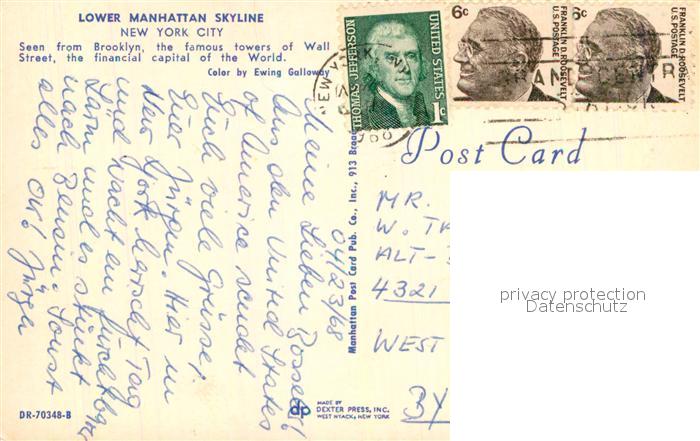 LOWER MANHATTAN SKYLINE
NEW YORK CITY
Seen from Brooklyn, the famous towers of Wall
Street, the financial capital of the World.
Color by Ewing Galloway
THOMAS JEFFERSON
UNITED STATES
1c
6c
FRANKLIN D. ROOSEVELT
U.S. POSTAGE
6c
FRANKLIN D. ROOSEVELT
U.S. POSTAGE
NEW YORK
1968
Post Card
Manhattan Post Card Pub. Co., Inc., 913 Broad
04/23/68
Meine Lieben
Aus den United States
of America sendet
Euch viele Grüsse
Euer Jürgen. Hier in
New York herrscht Tag
und Nacht ein furchtbarer
Lärm und es stinkt
nach Benzin. Sonst
alles OK! Jürgen
MR.
W.
ALT-
4321
WEST
BY
privacy protection
Datenschutz
DR-70348-B
dp
MADE BY
DEXTER PRESS, INC.
WEST NYACK, NEW YORK